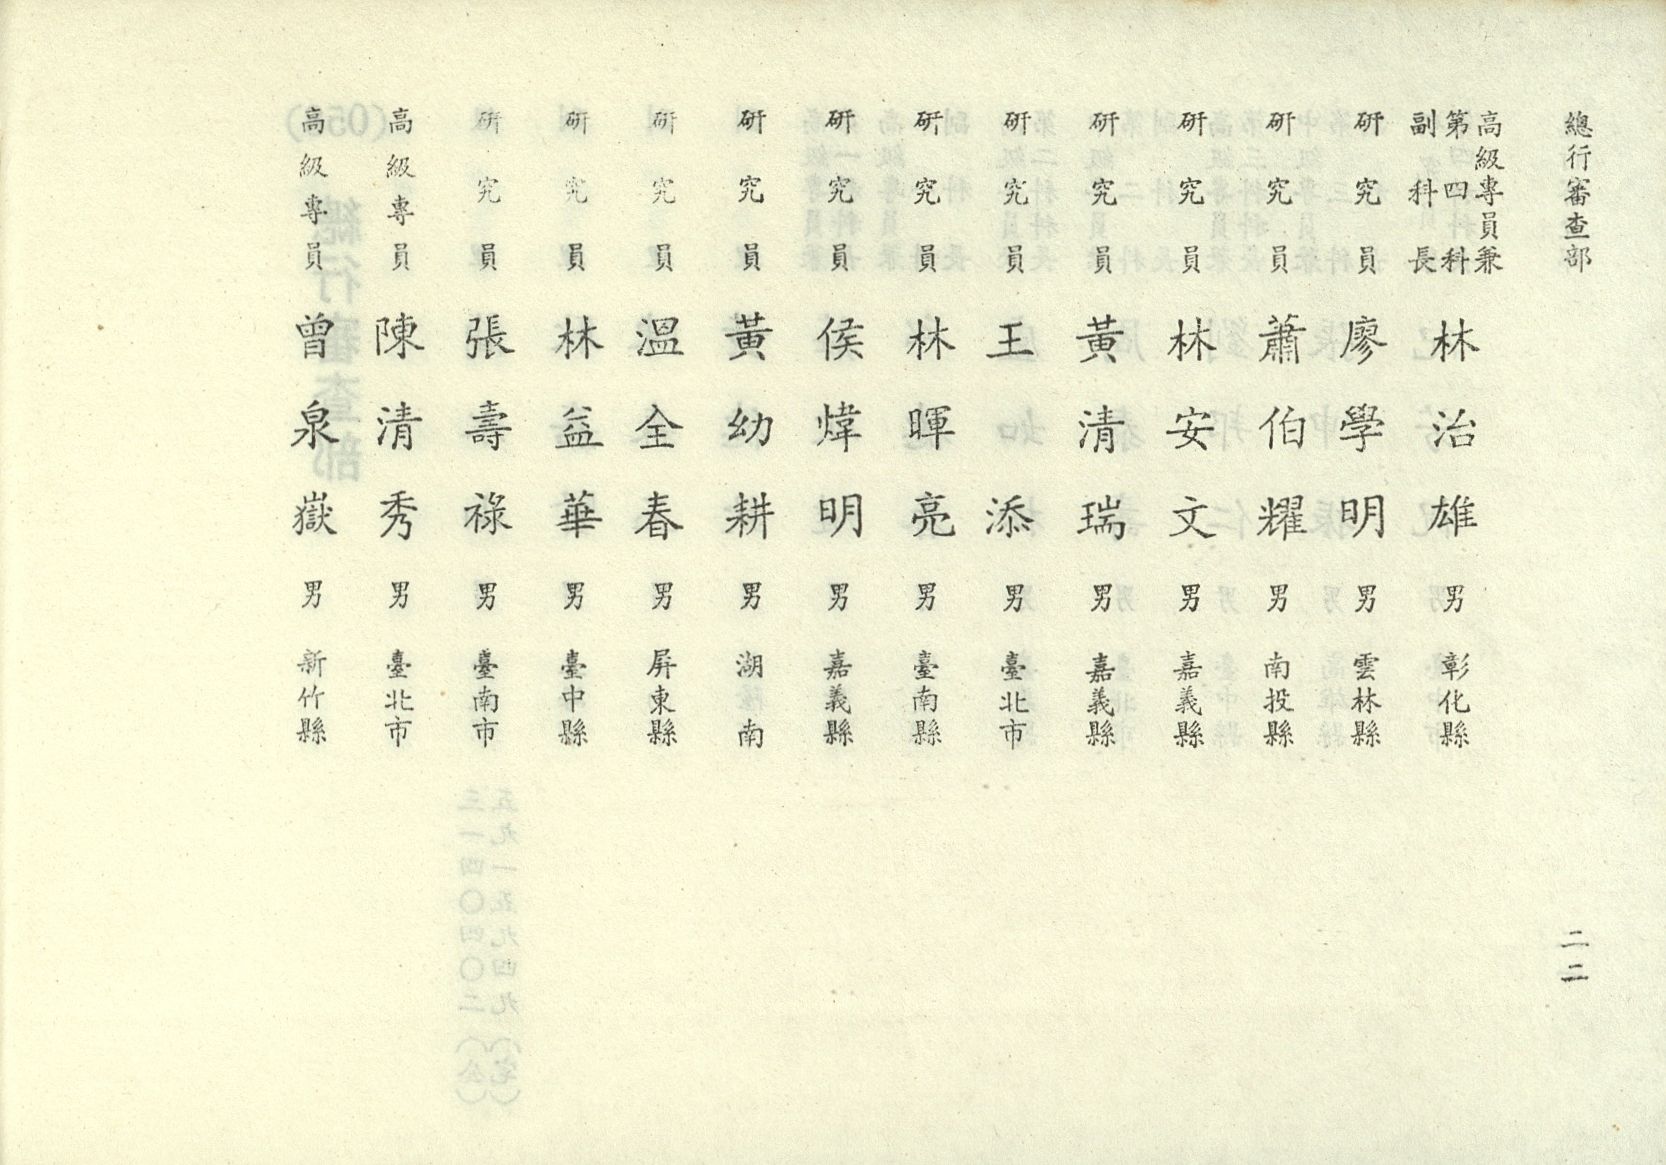 總行審查部
二二
高級專員兼第四科副科長 林治雄 男 彰化縣
研究員 廖學明 男 雲林縣
研究員 蕭伯耀 男 南投縣
研究員 林安文 男 嘉義縣
研究員 黃清瑞 男 嘉義縣
研究員 王添 男 臺北市
研究員 林暉亮 男 臺南縣
研究員 侯煒明 男 嘉義縣
研究員 黃幼耕 男 湖南
研究員 溫全春 男 屏東縣
研究員 林益華 男 臺中縣
研究員 張壽祿 男 臺南市
高級專員 陳清秀 男 臺北市
高級專員 曾泉嶽 男 新竹縣